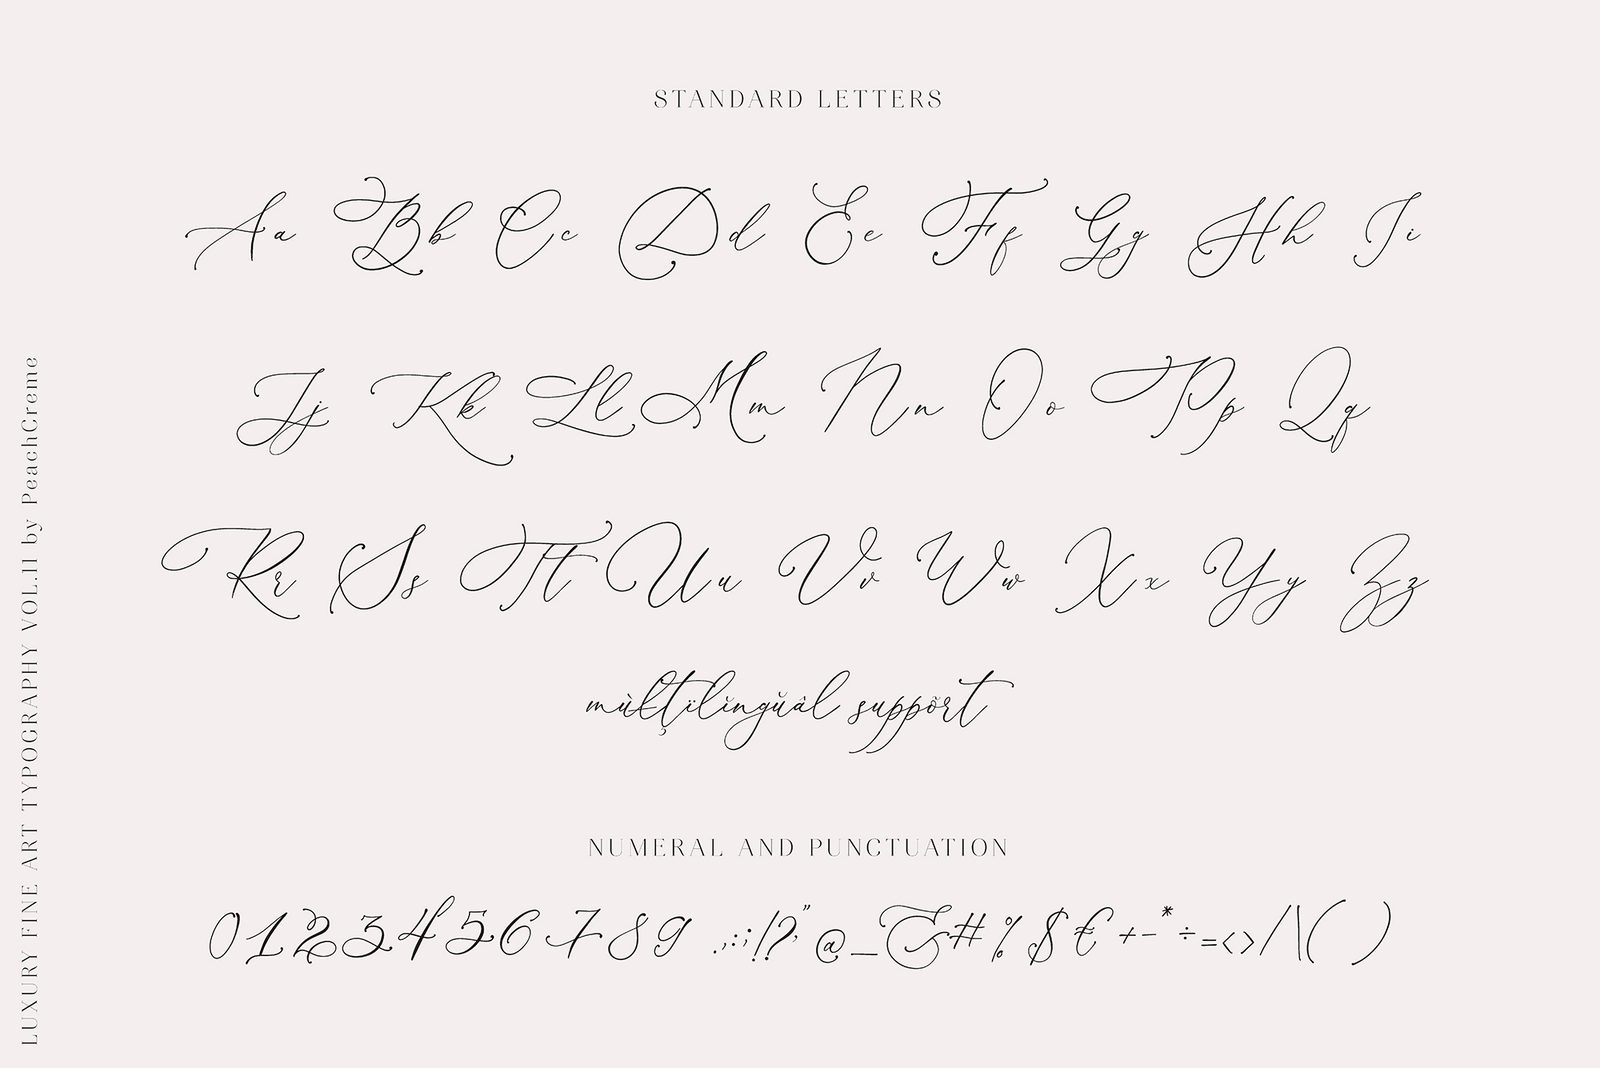 STANDARD LETTERS
Aa Bb Cc Dd Ee Ff Gg Hh Ii
Jj Kk Ll Mm Nn Oo Pp Qq
Rr Ss Tt Uu Vv Ww Xx Yy Zz
mùlţïlĭngŭàl suppõrt
NUMERAL AND PUNCTUATION
0123456789 .,:;!?'" @_&#%$€+-*÷=<>/|\( )
LUXURY FINE ART TYPOGRAPHY VOL.II by PeachCreme